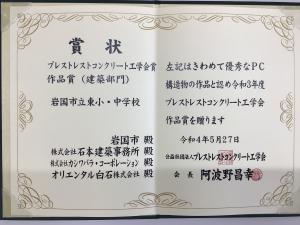 賞状
プレストレストコンクリート工学会賞
作品賞（建築部門）
岩国市立東小・中学校
岩国市 殿
株式会社 石本建築事務所 殿
株式会社 カシワバラ・コーポレーション 殿
オリエンタル白石株式会社 殿
左記はきわめて優秀なPC
構造物の作品と認め令和3年度
プレストレストコンクリート工学会
作品賞を贈ります
令和4年5月27日
公益社団法人 プレストレストコンクリート工学会
会長 阿波野昌幸